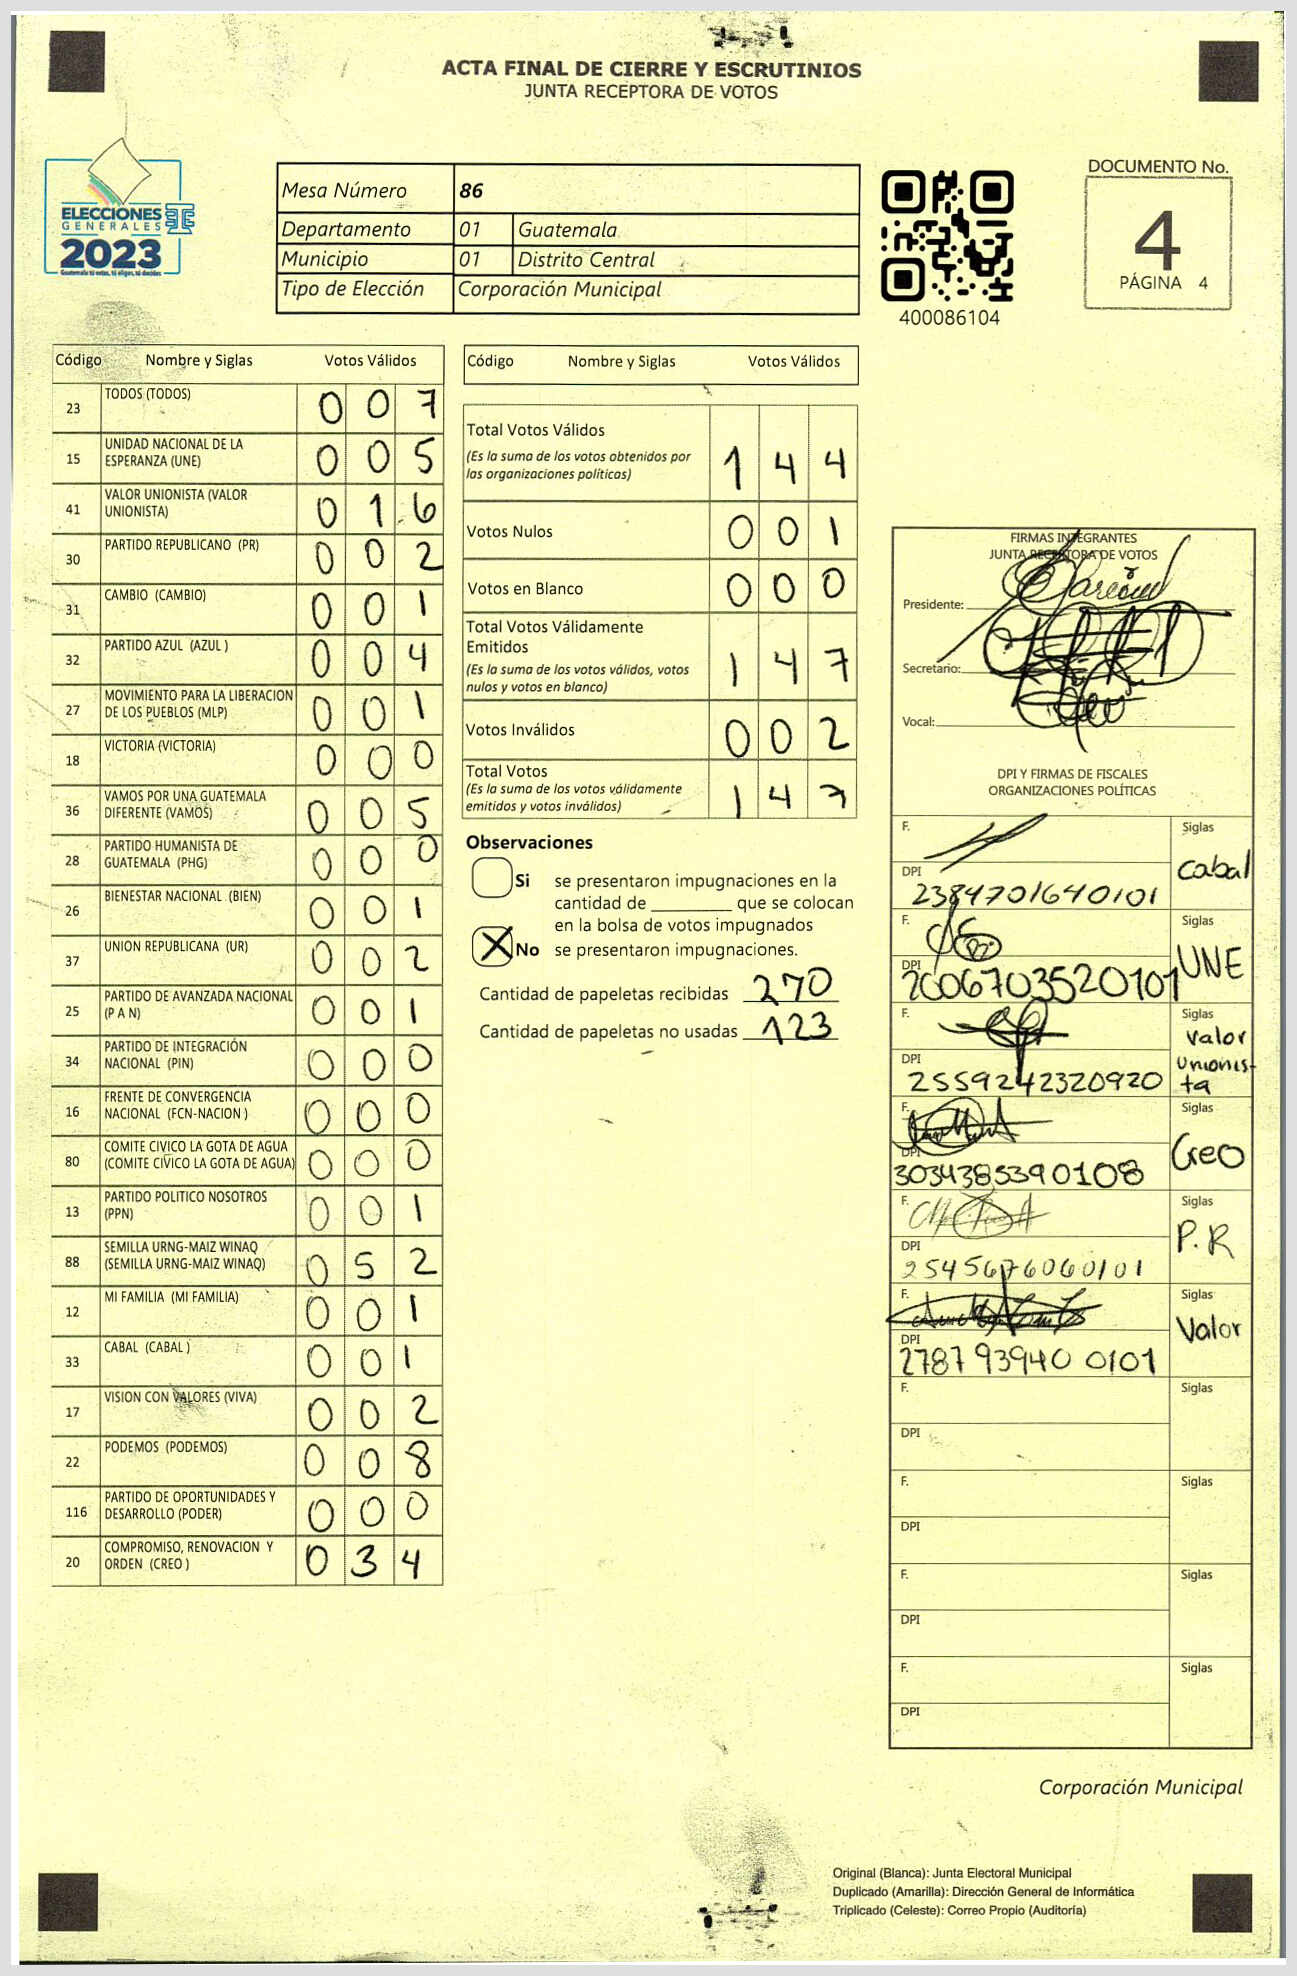 ACTA FINAL DE CIERRE Y ESCRUTINIOS
JUNTA RECEPTORA DE VOTOS
ELECCIONES
GENERALES
2023
Guatemala tú votas, tú eliges, tú decides
Mesa Número 86
Departamento 01 Guatemala
Municipio 01 Distrito Central
Tipo de Elección Corporación Municipal
400086104
DOCUMENTO No.
4
PÁGINA 4
Código Nombre y Siglas Votos Válidos
23 TODOS (TODOS) 0 0 7
15 UNIDAD NACIONAL DE LA
ESPERANZA (UNE) 0 0 5
41 VALOR UNIONISTA (VALOR
UNIONISTA) 0 1 6
30 PARTIDO REPUBLICANO (PR) 0 0 2
31 CAMBIO (CAMBIO) 0 0 1
32 PARTIDO AZUL (AZUL ) 0 0 4
27 MOVIMIENTO PARA LA LIBERACION
DE LOS PUEBLOS (MLP) 0 0 1
18 VICTORIA (VICTORIA) 0 0 0
36 VAMOS POR UNA GUATEMALA
DIFERENTE (VAMOS) 0 0 5
28 PARTIDO HUMANISTA DE
GUATEMALA (PHG) 0 0 0
26 BIENESTAR NACIONAL (BIEN) 0 0 1
37 UNION REPUBLICANA (UR) 0 0 2
25 PARTIDO DE AVANZADA NACIONAL
(P A N) 0 0 1
34 PARTIDO DE INTEGRACIÓN
NACIONAL (PIN) 0 0 0
16 FRENTE DE CONVERGENCIA
NACIONAL (FCN-NACION ) 0 0 0
80 COMITE CIVICO LA GOTA DE AGUA
(COMITE CÍVICO LA GOTA DE AGUA) 0 0 0
13 PARTIDO POLITICO NOSOTROS
(PPN) 0 0 1
88 SEMILLA URNG-MAIZ WINAQ
(SEMILLA URNG-MAIZ WINAQ) 0 5 2
12 MI FAMILIA (MI FAMILIA) 0 0 1
33 CABAL (CABAL ) 0 0 1
17 VISION CON VALORES (VIVA) 0 0 2
22 PODEMOS (PODEMOS) 0 0 8
116 PARTIDO DE OPORTUNIDADES Y
DESARROLLO (PODER) 0 0 0
20 COMPROMISO, RENOVACION Y
ORDEN (CREO ) 0 3 4
Código Nombre y Siglas Votos Válidos
Total Votos Válidos
(Es la suma de los votos obtenidos por
las organizaciones políticas) 1 4 4
Votos Nulos 0 0 1
Votos en Blanco 0 0 0
Total Votos Válidamente
Emitidos
(Es la suma de los votos válidos, votos
nulos y votos en blanco) 1 4 7
Votos Inválidos 0 0 2
Total Votos
(Es la suma de los votos válidamente
emitidos y votos inválidos) 1 4 7
Observaciones
Si se presentaron impugnaciones en la
cantidad de ________ que se colocan
en la bolsa de votos impugnados
X No se presentaron impugnaciones.
Cantidad de papeletas recibidas 270
Cantidad de papeletas no usadas 123
FIRMAS INTEGRANTES
JUNTA RECEPTORA DE VOTOS
Presidente:
Secretario:
Vocal:
DPI Y FIRMAS DE FISCALES
ORGANIZACIONES POLÍTICAS
F. Siglas
Cabal
DPI
2384701640101
F. Siglas
UNE
DPI
2006703520101
F. Siglas
Valor
Unionis-
ta
DPI
2559242320920
F. Siglas
Creo
DPI
3034385390108
F. Siglas
P.R
DPI
2545676060101
F. Siglas
Valor
DPI
2787 93940 0101
F. Siglas
DPI
F. Siglas
DPI
F. Siglas
DPI
F. Siglas
DPI
Corporación Municipal
Original (Blanca): Junta Electoral Municipal
Duplicado (Amarilla): Dirección General de Informática
Triplicado (Celeste): Correo Propio (Auditoría)